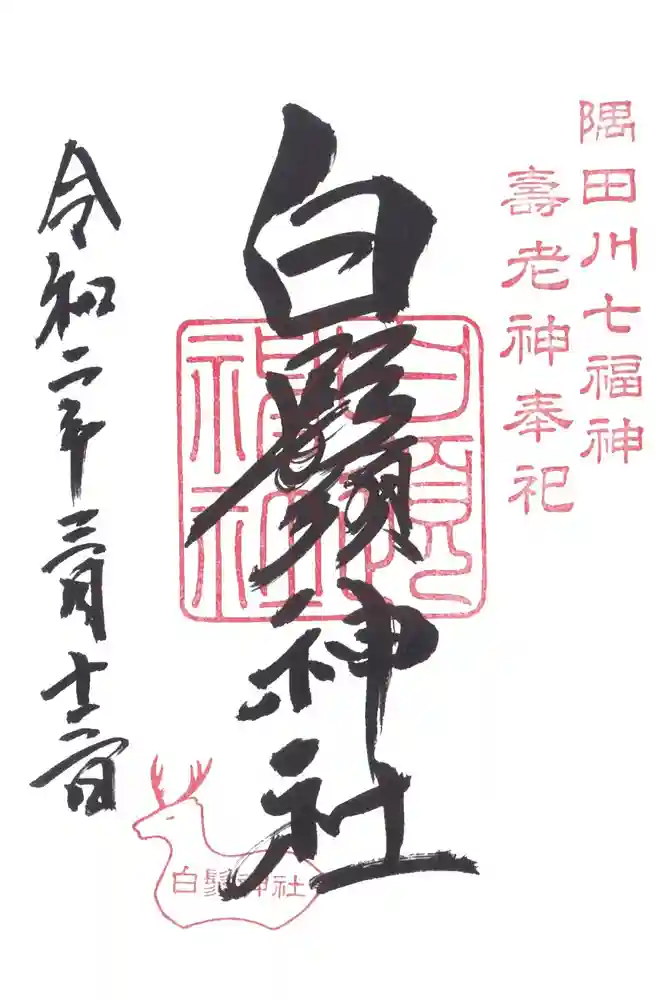 隅田川七福神
壽老神奉祀
白鬚神社
令和二年三月十二日
白鬚神社